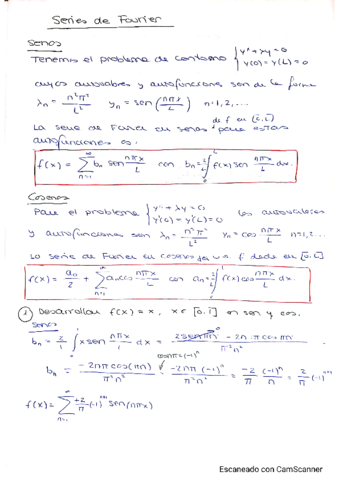 Series de Fourier
Senos
Tenemos el problema de contorno { y'' + λy = 0
y(0) = y(L) = 0
cuyos autovalores y autofunciones son de la forma
λn = n²π²/L² yn = sen(nπx/L) n=1,2,...
La serie de Fourier en senos de f en [0,L] para estas
autofunciones es:
f(x) = ∑_{n=1}^{∞} bn sen nπx/L con bn = 2/L ∫_0^L f(x) sen nπx/L dx.
Cosenos
Para el problema { y'' + λy = 0
y'(0) = y'(L) = 0 los autovalores
y autofunciones son λn = n²π²/L² yn = cos nπx/L n=1,2...
La serie de Fourier en cosenos de f desde en [0,L]
f(x) = a0/2 + ∑_{n=1}^{∞} an cos nπx/L con an = 2/L ∫_0^L f(x) cos nπx/L dx.
① Desarrollar f(x) = x, x ∈ [0,1] en sen y cos.
Senos
bn = 2/1 ∫_0^1 x sen nπx/1 dx = (2sen(πn) - 2n·π cos πn)/(π²n²)
cos nπ = (-1)ⁿ
bn = -2nπ cos(πn)/(π²n²) = -2πn(-1)ⁿ/(π²n²) = -2/π (-1)ⁿ/n = 2/π (-1)ⁿ⁺¹/n
f(x) = ∑_{n=1}^{∞} +2/π (-1)ⁿ⁺¹ sen(nπx)
Escaneado con CamScanner